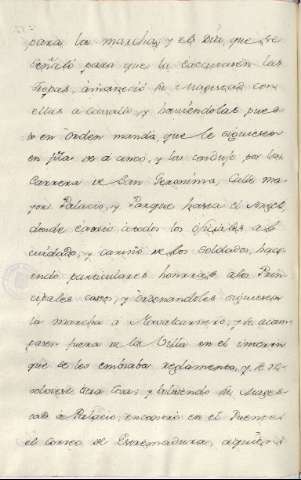 para la marcha, y el dia que se
señaló para que la executasen las
tropas, amaneció su Magestad con
ellas a cavallo, y haviendolas pues
to en orden manda que le siguiesen
en fila de a cinco, y las condujo por las
Carrera de San Geronimo, Calle ma
yor, Palacio, y Parque hasta el Angel,
donde a todos los oficiales el
cuidado, y cariño de los Soldados, hac
iendo particulares honrras a los Prin
cipales cavos, y ordenandoles siguiesen
la marcha a Navalcarnero, y de acam
pasen fuera de la Villa en el interin
que se les embiaba reglamento, y
otra cosa; y bolviendo su Mages
tad a Palacio, encontró en el Puente
el correo de Estremadura, aquien